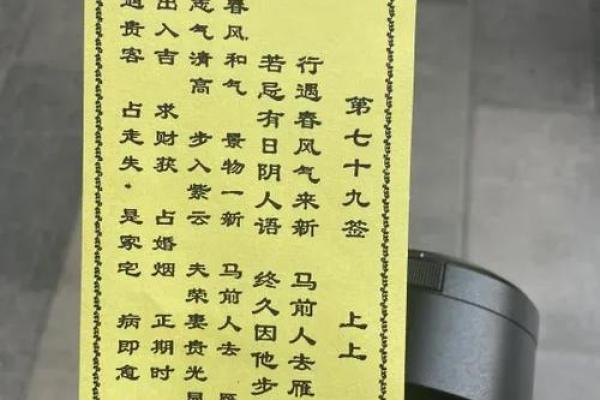 第七十九签 上上
行遇春风气来新 马前人去雁
若忌有日阴人语 终久因他步
春风和气 景物一新 马前人去
志气清高 步入紫云 夫荣妻贵光
出入吉 求财获 占婚烟 正期时
遇贵客 占走失·是家宅 病即愈